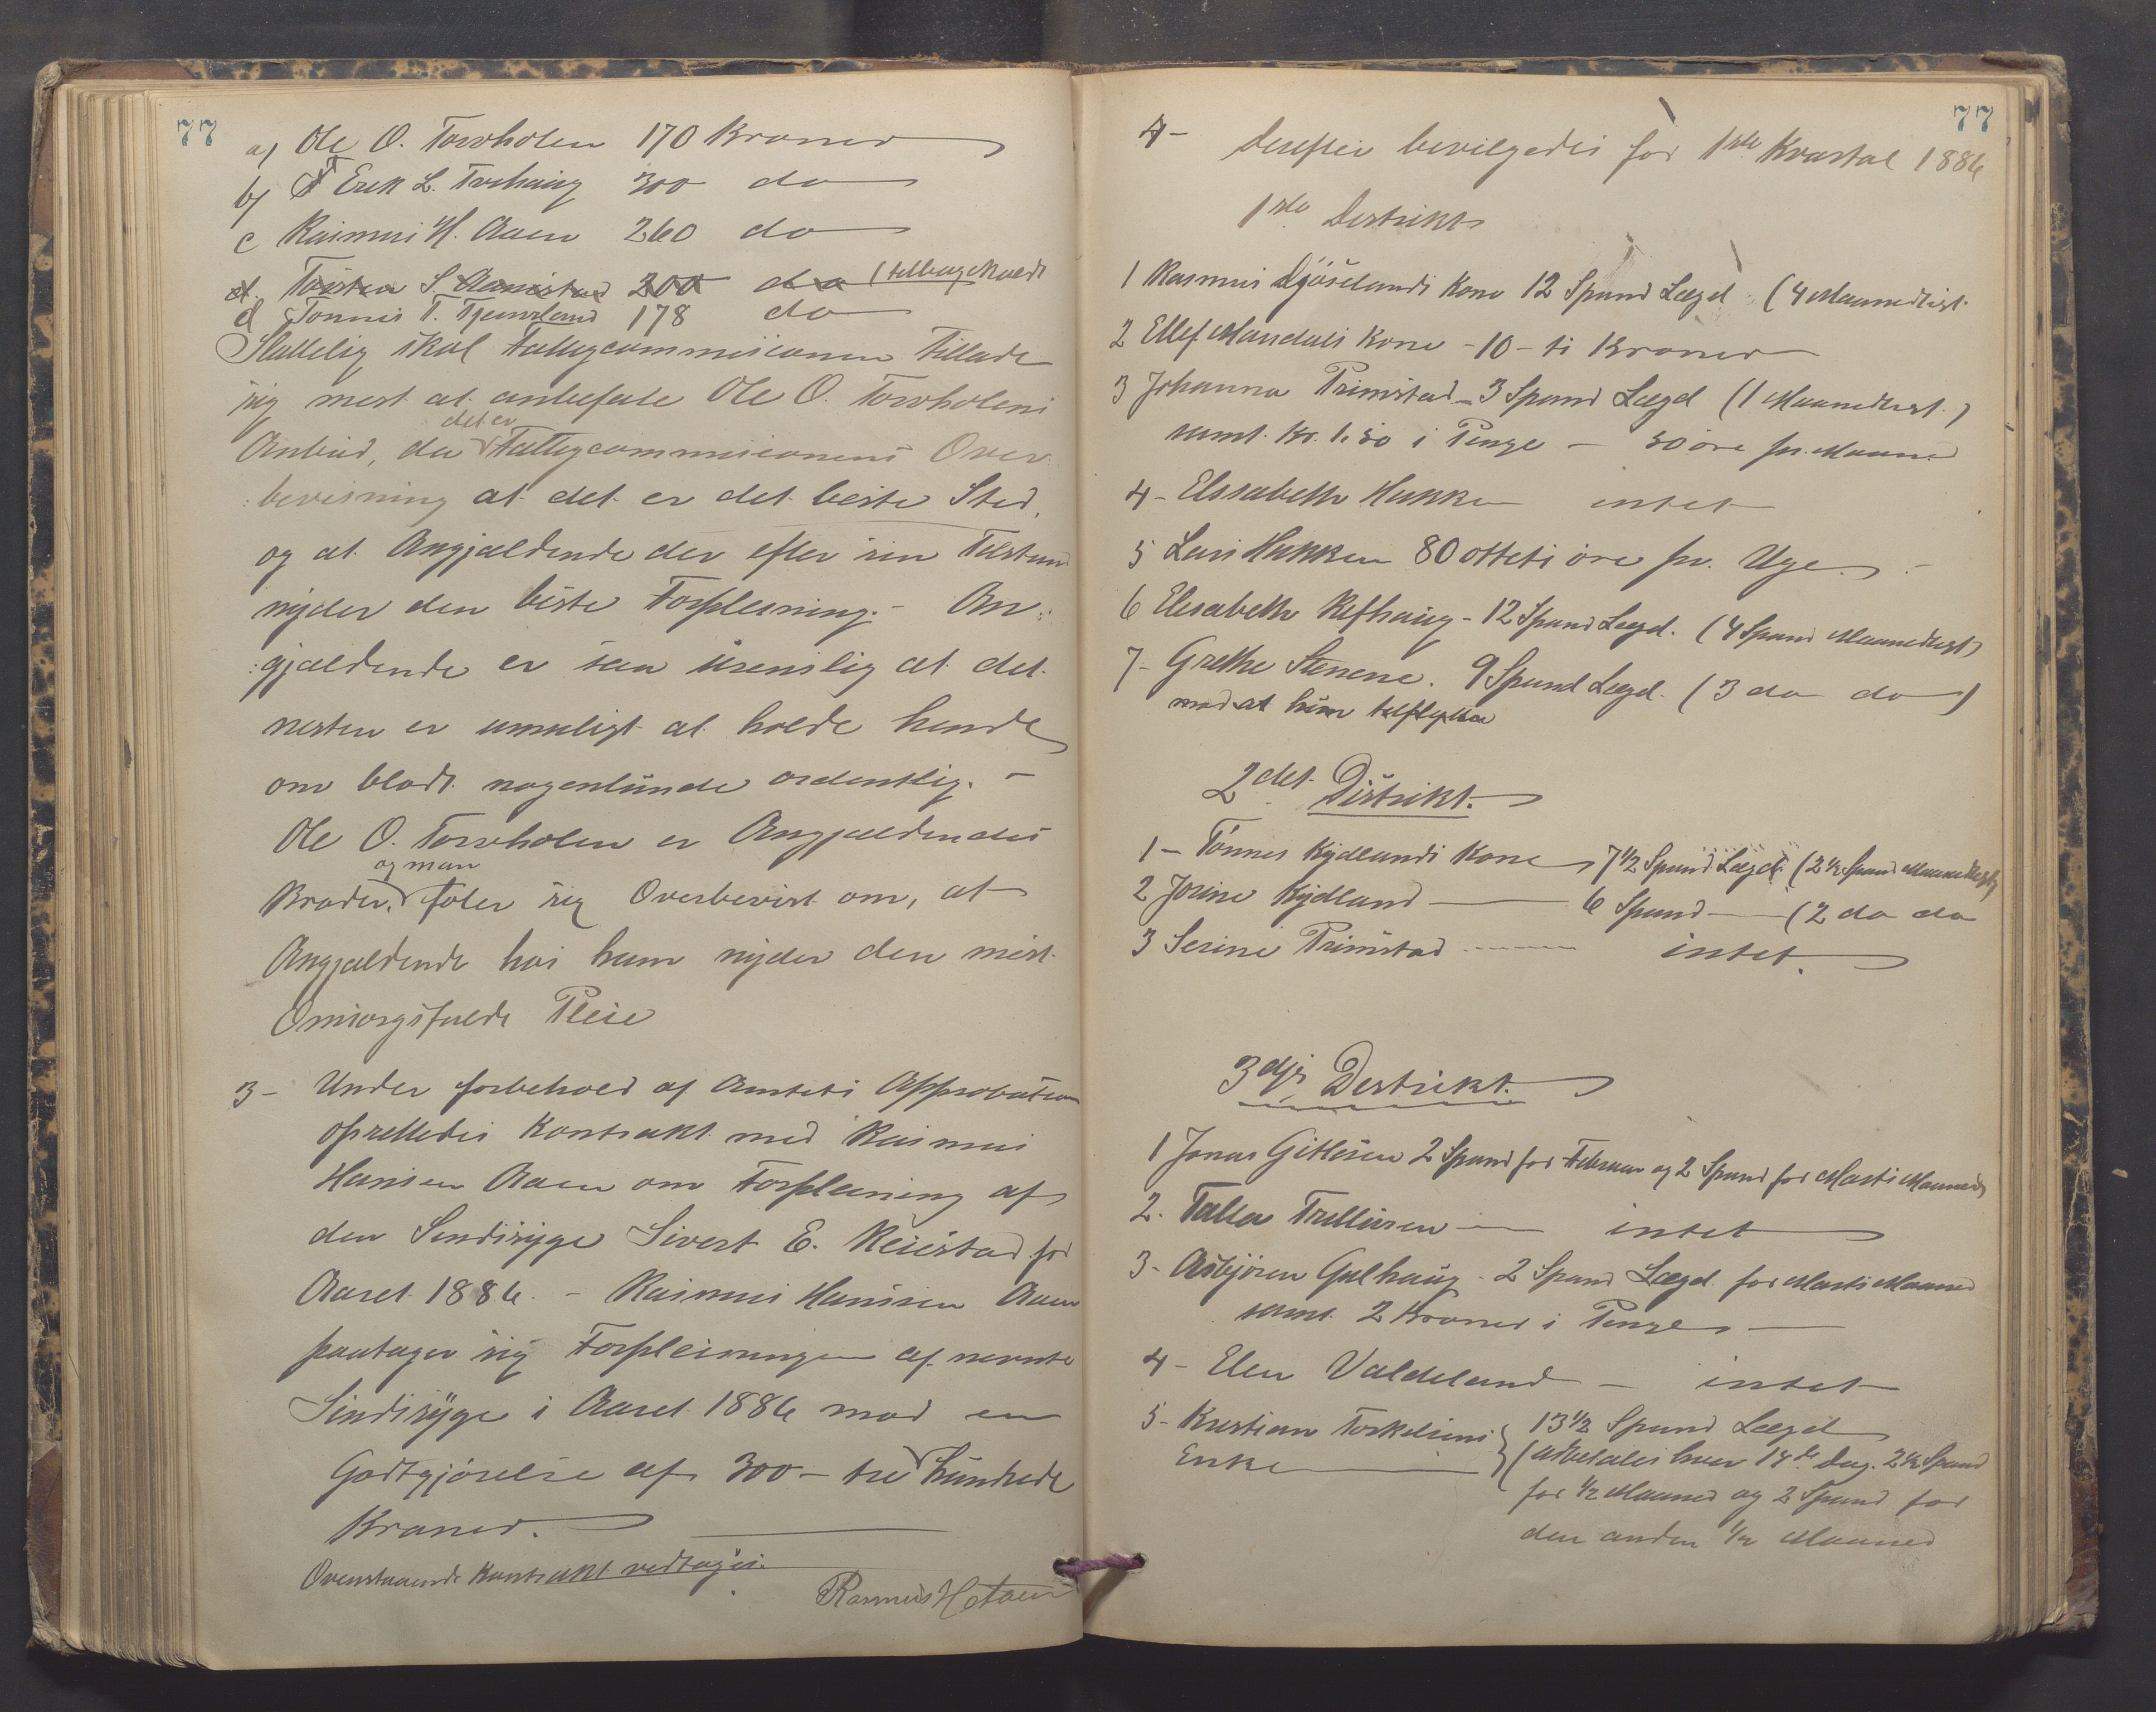 77
a) Ole O. Torvholen 170 Kroner
b) Erek L. Tvehaug 300 do
c Rasmus H. Aaen 260 do
d. Torsten S. Aanestad 200 do (tilbagekaldt
d Tønnes T. Tjøvsland 178 do
Sluttelig skal Fattigcommisionen tillade
sig mest at anbefale Ole O. Torvholens
det er
Anbud, da Fattigcommisionens Over
bevisning at det er det beste Sted,
og at Angjældende der efter sin Tilstand
nyder den beste Forpleining. - An:
:gjældende er saa urenslig at det
nesten er umuligt at holde hende
om blodt nogenlunde ordentlig. -
Ole O. Torvholen er Angjældendes
og man
Broder, føler sig Overbevist om, at
Angjældende hos ham nyder den mest
Omsorgsfulde Pleie
3- Under forbehold af Amtets Approbation
oprettedes Kontrakt med Rasmus
Hansen Aaen om Forpleining af
den Sindssyge Sivert E. Reiestad for
Aaret 1886. - Rasmus Hanssen Aaen
paatager sig Forpleiningen af nevnte
Sindssyge i Aaret 1886 mod en
Godtgjørelse af 300 - tre hundrede
Kroner.
Ovenstaaende Kontrakt vedtages.
Rasmus H Aaen
77
4- Derefter bevilgedes for 1ste Kvartal 1886
1ste Destrikt
1 Rasmus Djöselands Kone 12 Spand Lægd (4 Maanedligt.
2 Ellef Mandals Kone - 10 - ti Kroner
3 Johanna Primstad - 3 Spand Lægd (1 Maanedligt.)
samt Kr. 1.50 i Penge - 50 øre pr. Maaned
4 - Elssabeth Hukken intet
5 Lars Hukken 80 otteti øre pr. Uge. -
6 Elesabeth Refhaug - 12 Spand Lægd. (4 Spand Maanedligt)
7 - Grethe Stenene. 9 Spand Lægd. (3 do do)
mod at hun tilflytter
2det Distrikt.
1 - Tönnes Kydlands Kone 7 1/2 Spand Lægd (2 1/2 Spand Maanedligt)
2 Josine Kydland 6 Spand (2 do do
3 Serine Primstad intet.
3dje Destrikt.
1 Jonas Gitlesen 2 Spand for Februar og 2 Spand for Marts Maaned
2. Talla Trellusen intet
3 - Asbjören Gulhaug - 2 Spand Lægd for Marts Maaned
samt 2 Kroner i Penge
4 - Elen Valdeland - intet
5 - Kristian Torkelsens 13 1/2 Spand Lægd
Enke (udbetales hver 14de Dag. 2 1/2 Spand
for 1/2 Maaned og 2 Spand for
den anden 1/2 Maaned